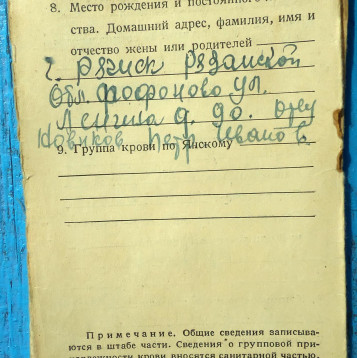 8. Место рождения и постоянного
ства. Домашний адрес, фамилия, имя и
отчество жены или родителей
г. Ряжск Рязанской
Обл. Фофоново ул.
Ленина д. 20. отец
Новиков Петр Иванов
9. Группа крови по Янскому
Примечание. Общие сведения записыва-
ются в штабе части. Сведения о групповой при-
надлежности крови вносятся санитарной частью.